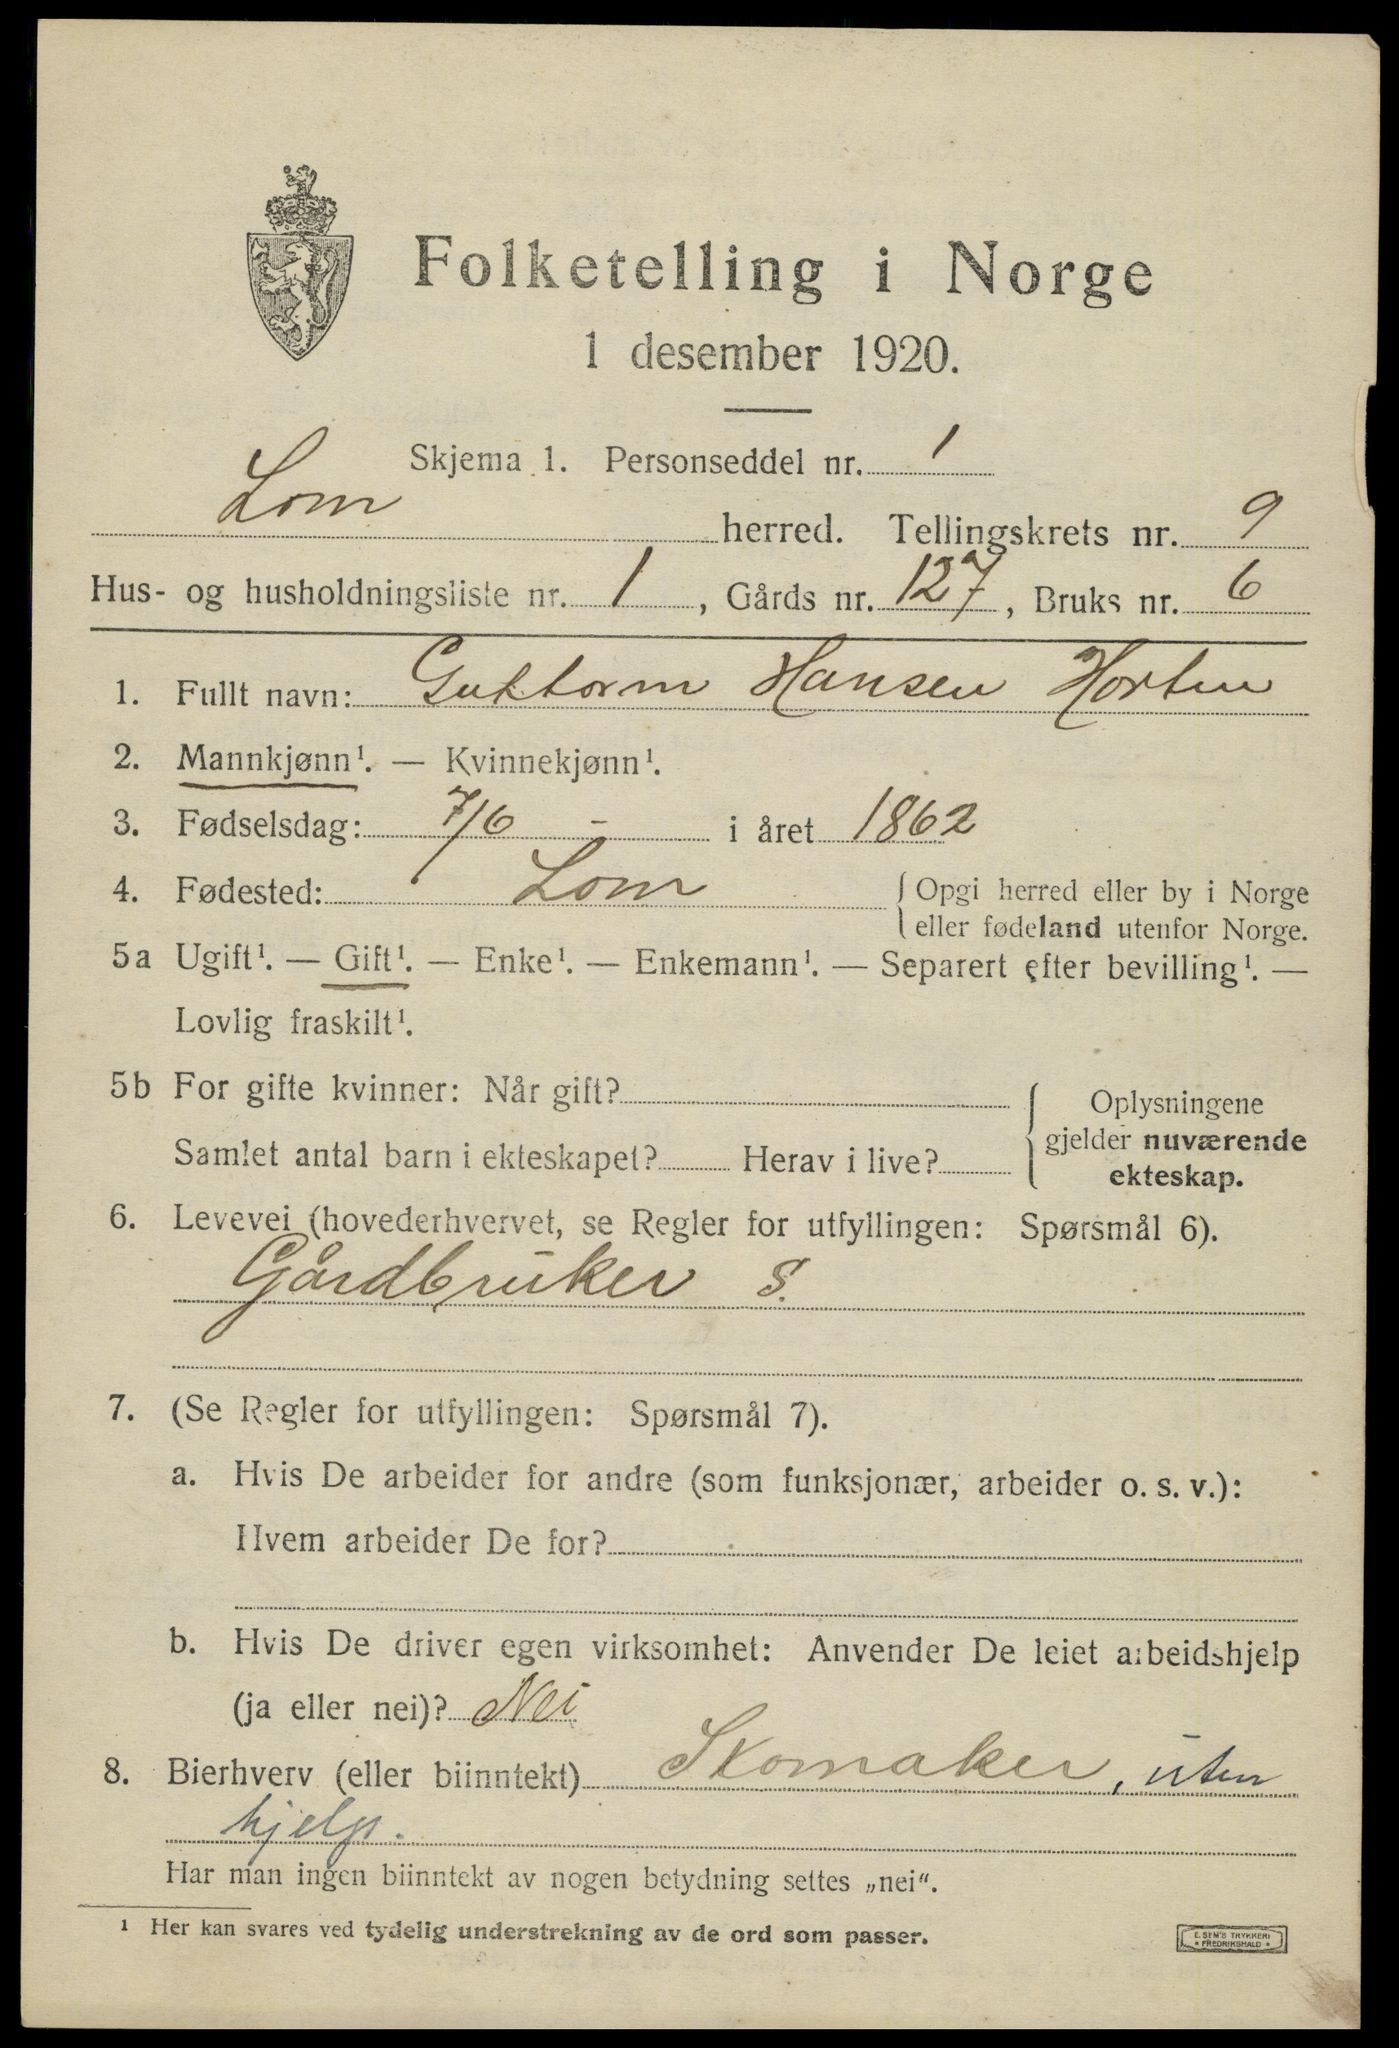 Folketelling i Norge
1 desember 1920.
Skjema 1. Personseddel nr. 1
Lom herred. Tellingskrets nr. 9
Hus- og husholdningsliste nr. 1, Gårds nr. 127, Bruks nr. 6
1. Fullt navn: Guttorm Hansen Horten
2. Mannkjønn¹. — Kvinnekjønn¹.
3. Fødselsdag: 7/6 - i året 1862
4. Fødested: Lom { Opgi herred eller by i Norge
eller fødeland utenfor Norge.
5a Ugift¹. — Gift¹. — Enke¹. — Enkemann¹. — Separert efter bevilling¹. —
Lovlig fraskilt¹.
5b For gifte kvinner: Når gift?
Samlet antal barn i ekteskapet? Herav i live?
{ Oplysningene
gjelder nuværende
ekteskap.
6. Levevei (hovederhvervet, se Regler for utfyllingen: Spørsmål 6).
Gårdbruker S.
7. (Se Regler for utfyllingen: Spørsmål 7).
a. Hvis De arbeider for andre (som funksjonær, arbeider o. s. v.):
Hvem arbeider De for?
b. Hvis De driver egen virksomhet: Anvender De leiet arbeidshjelp
(ja eller nei)? Nei
8. Bierhverv (eller biinntekt) Skomaker, uten
hjelp.
Har man ingen biinntekt av nogen betydning settes „nei“.
¹ Her kan svares ved tydelig understrekning av de ord som passer.
E. SEM'S TRYKKERI
* FREDRIKSHALD *